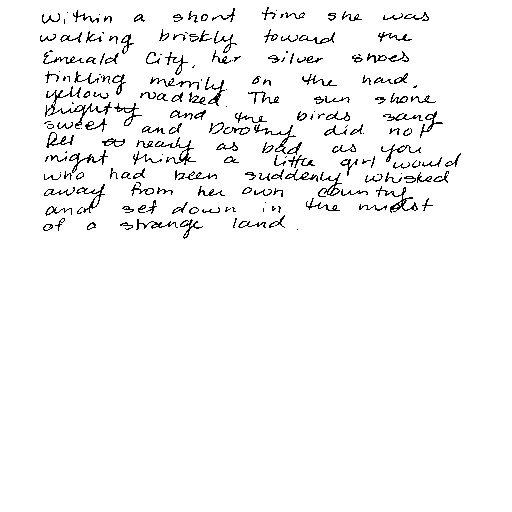 within a short time she was
walking briskly toward the
Emerald City, her silver shoes
tinkling merrily on the hard,
yellow roadbed. The sun shone
brightly and the birds sang
sweet and Dorothy did not
feel so nearly as bad as you
might think a little girl would
who had been suddenly whisked
away from her own country
and set down in the midst
of a strange land.